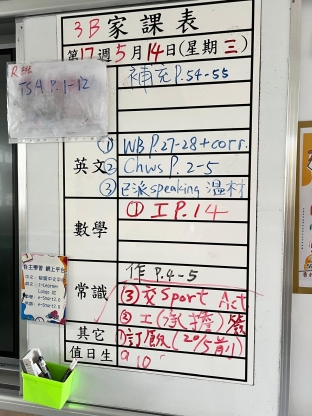 3B家課表
第17週5月14日(星期三)
TSA P.1-12
補充P.54-55
英文
① WB P.27-28+corr.
② Chws P.2-5
③ 已派speaking 溫材
數學
① 工 P.14
常識
作 P.4-5
③ 交 Sport Act
② 工(承擔)
其它
訂飯(20/5前)
值日生
9 10
自主學習 網上平台